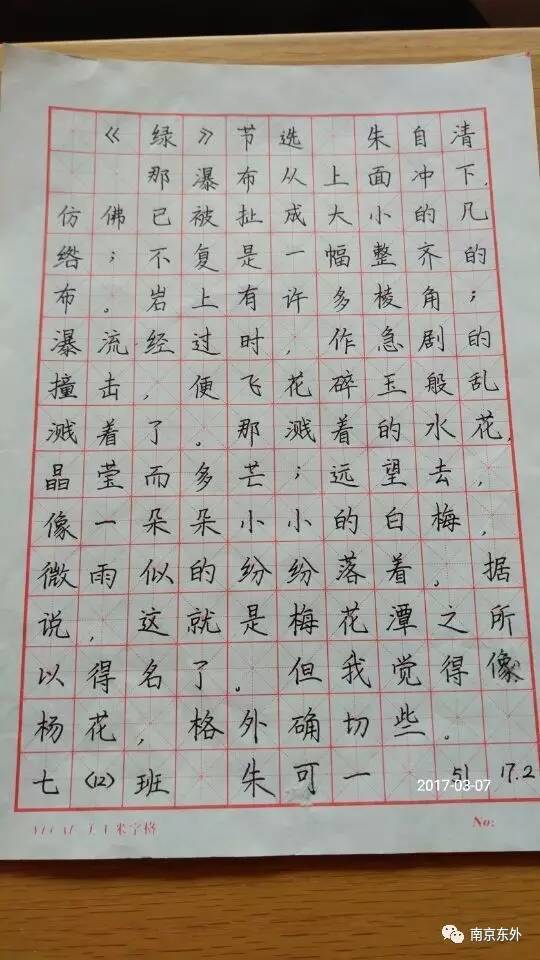 《绿》节选 朱自清
那瀑布从上面冲下,
仿佛已被扯成大小的几
绺;不复是一幅整齐的
布。岩上有许多棱角;
瀑流经过时,作急剧的
撞击,便飞花碎玉般乱
溅着了。那溅着的水花,
晶莹而多芒;远望去,
像一朵朵小小的白梅,
微雨似的纷纷落着。据
说,这就是梅花潭之所
以得名了。但我觉得像
杨花,格外确切些。
七(12)班 朱可一 51 17.2
2017-03-07
米字格 No:
南京东外